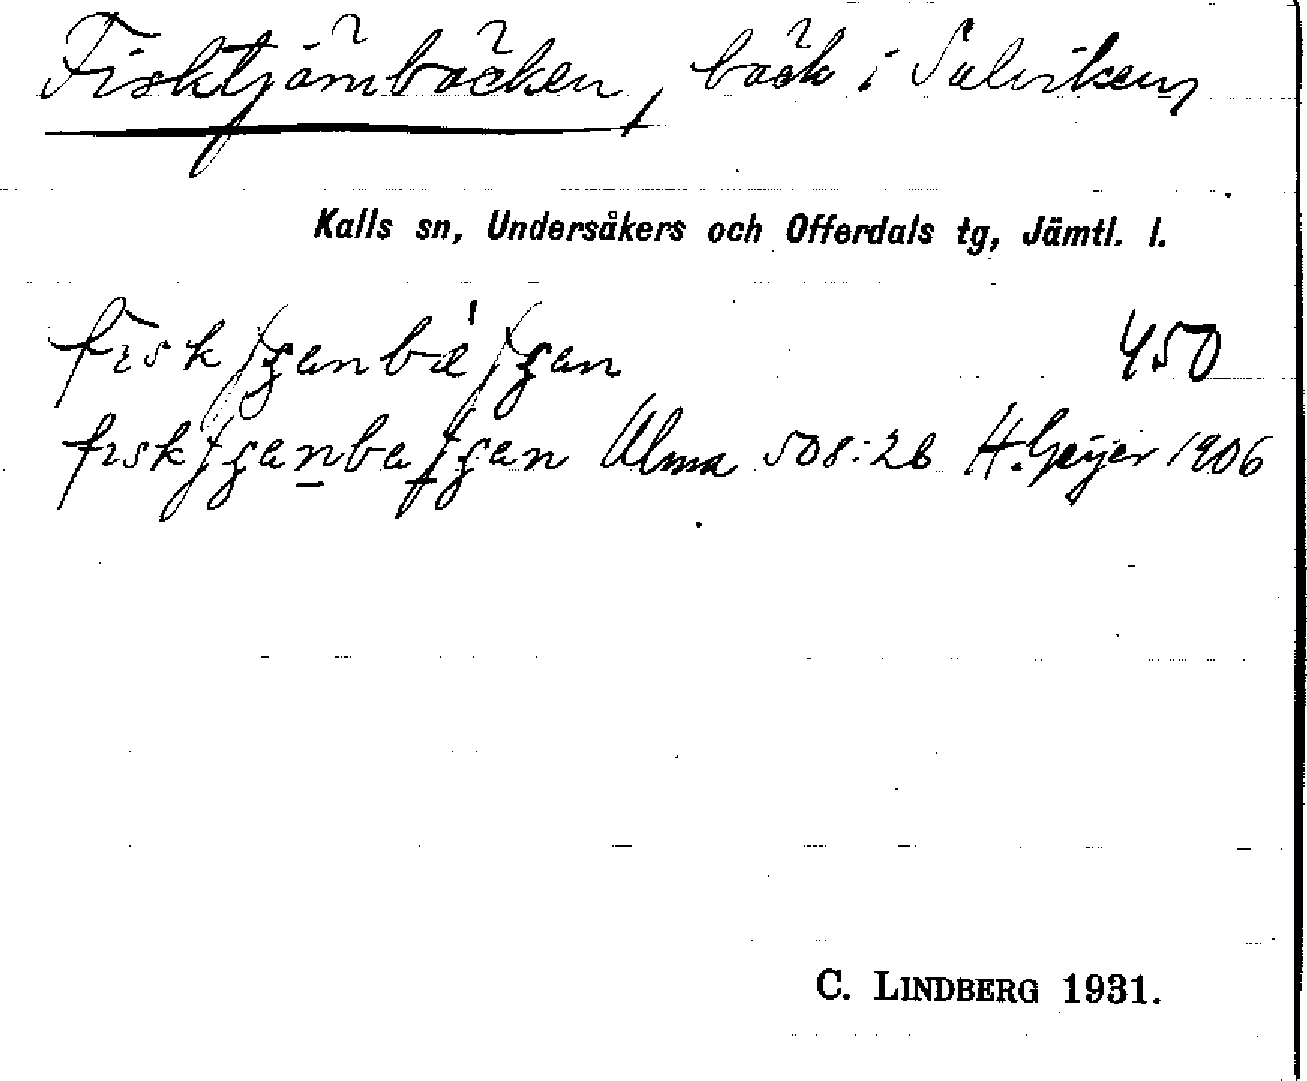 Fisktjärnbäcken, bäck i Sulviken,
Kalls sn, Undersåkers och Offerdals tg, Jämtl. l.
450
Ulma 508:26 H. Geijer 1906
C. LINDBERG 1931.